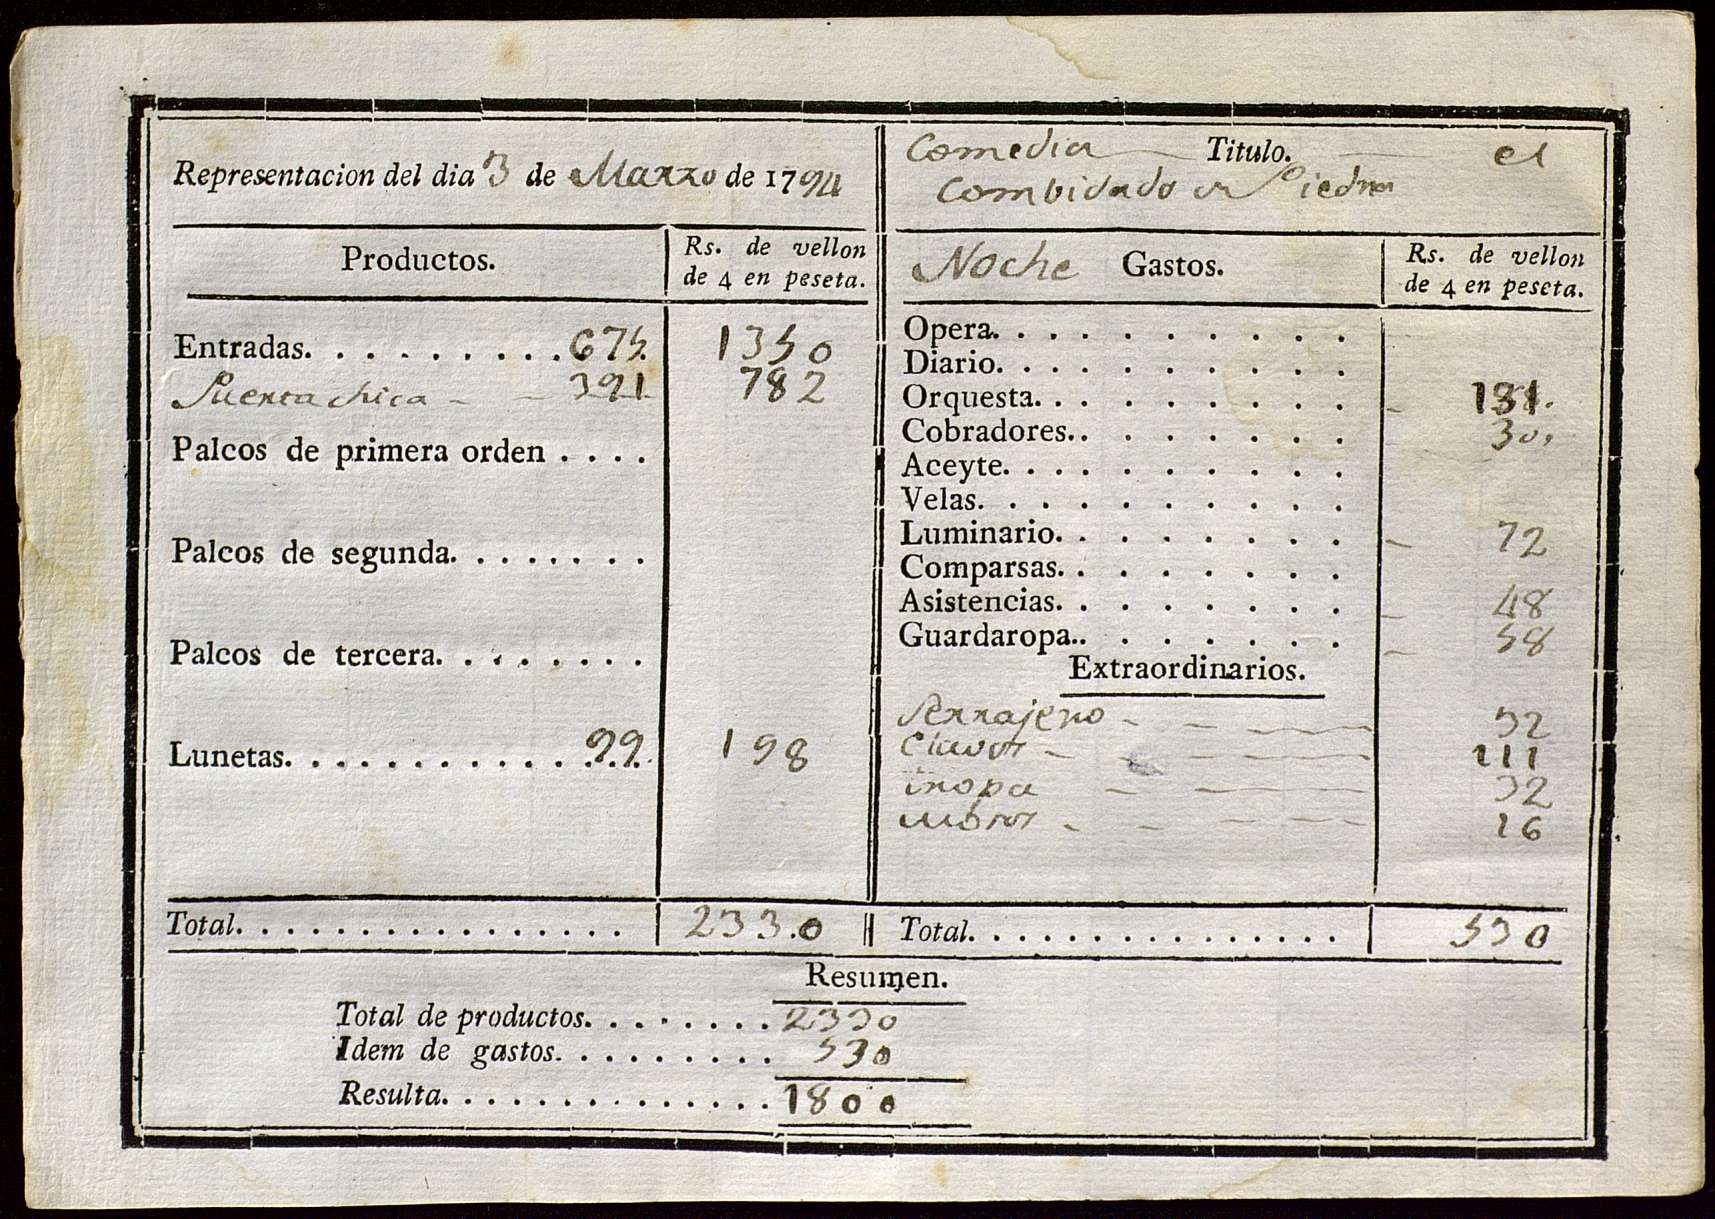 Representacion del dia 3 de Marzo de 1794
Comedia Titulo. el
Combidado de Piedra
Productos. Rs. de vellon
de 4 en peseta.
Entradas. 675. 1350
Puerta chica 391 782
Palcos de primera orden
Palcos de segunda.
Palcos de tercera.
Lunetas. 99. 198
Total. 2330
Noche Gastos. Rs. de vellon
de 4 en peseta.
Opera.
Diario.
Orquesta. 131.
Cobradores. 30.
Aceyte.
Velas.
Luminario. 72
Comparsas.
Asistencias. 48
Guardaropa. 58
Extraordinarios.
Serrajero 32
111
tropa 32
16
Total. 530
Resumen.
Total de productos. 2330
Idem de gastos. 530
Resulta. 1800